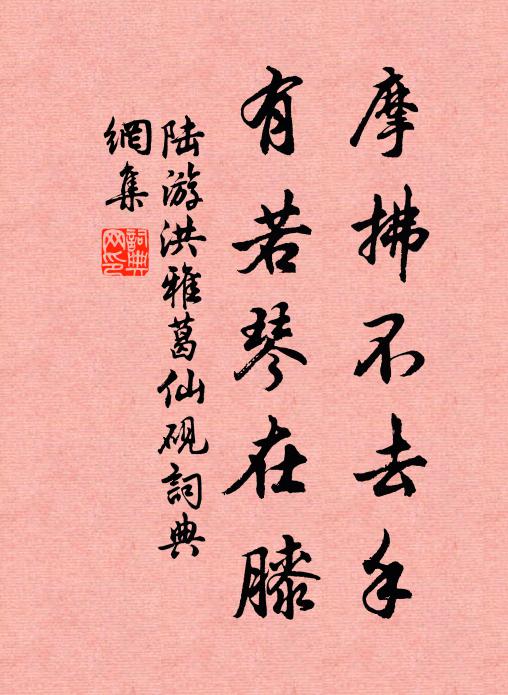 摩拂不去手
有若琴在膝
陆游洪雅葛仙砚詞典
網集
詞典網印